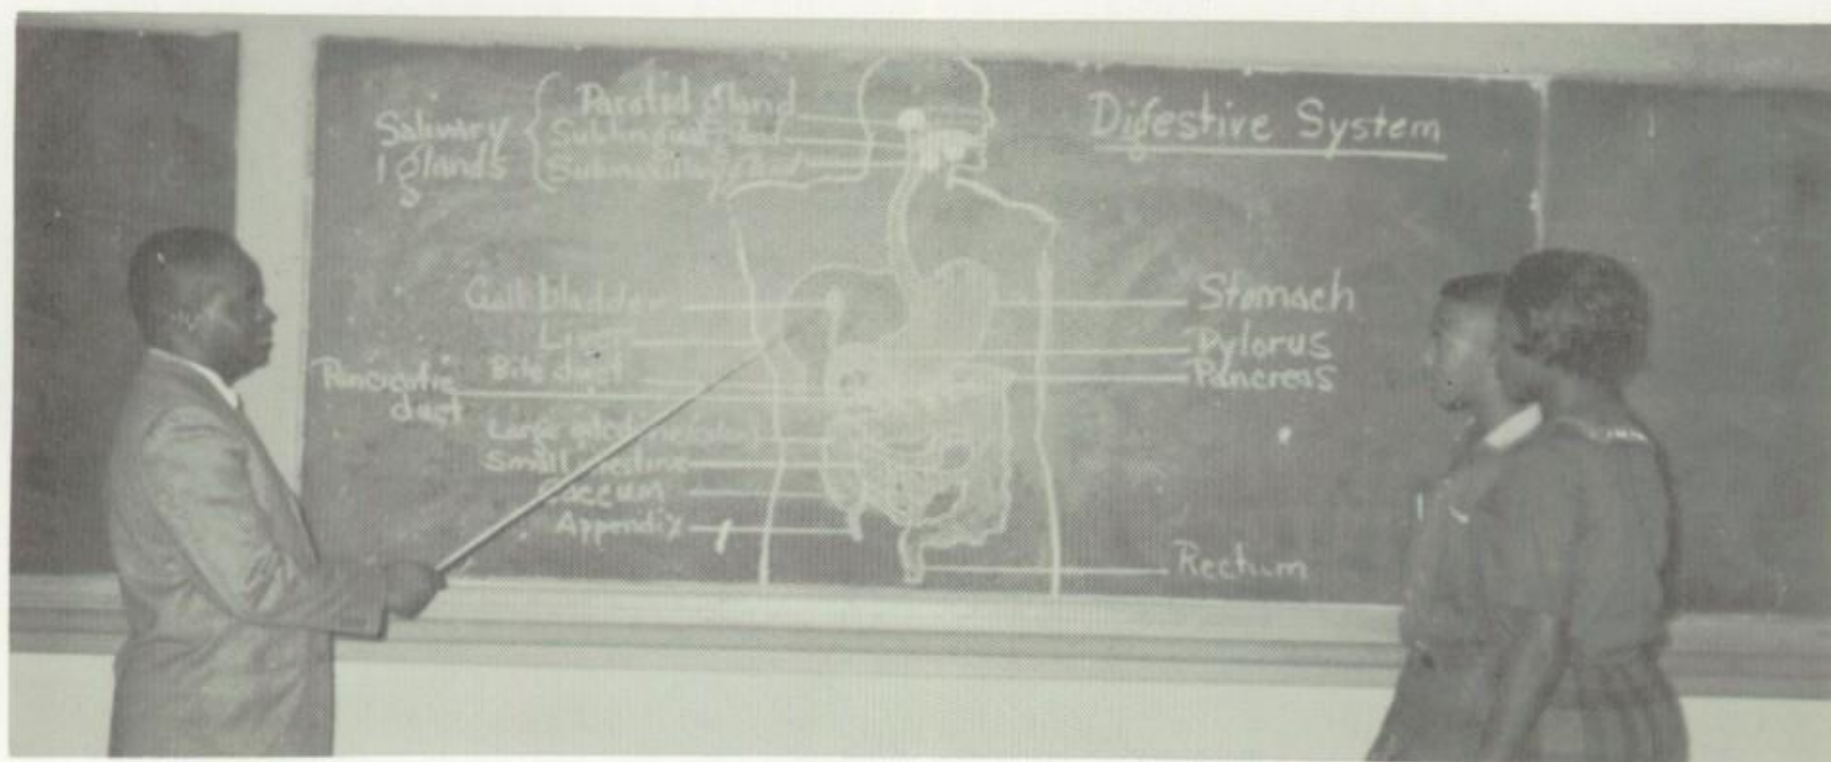 Digestive System
Salivary
glands
Parotid gland
Sublingual gland
Submaxillary gland
Gall bladder
Liver
Bile duct
Pancreatic
duct
Large intestine (colon)
Small intestine
Caecum
Appendix
Stomach
Pylorus
Pancreas
Rectum